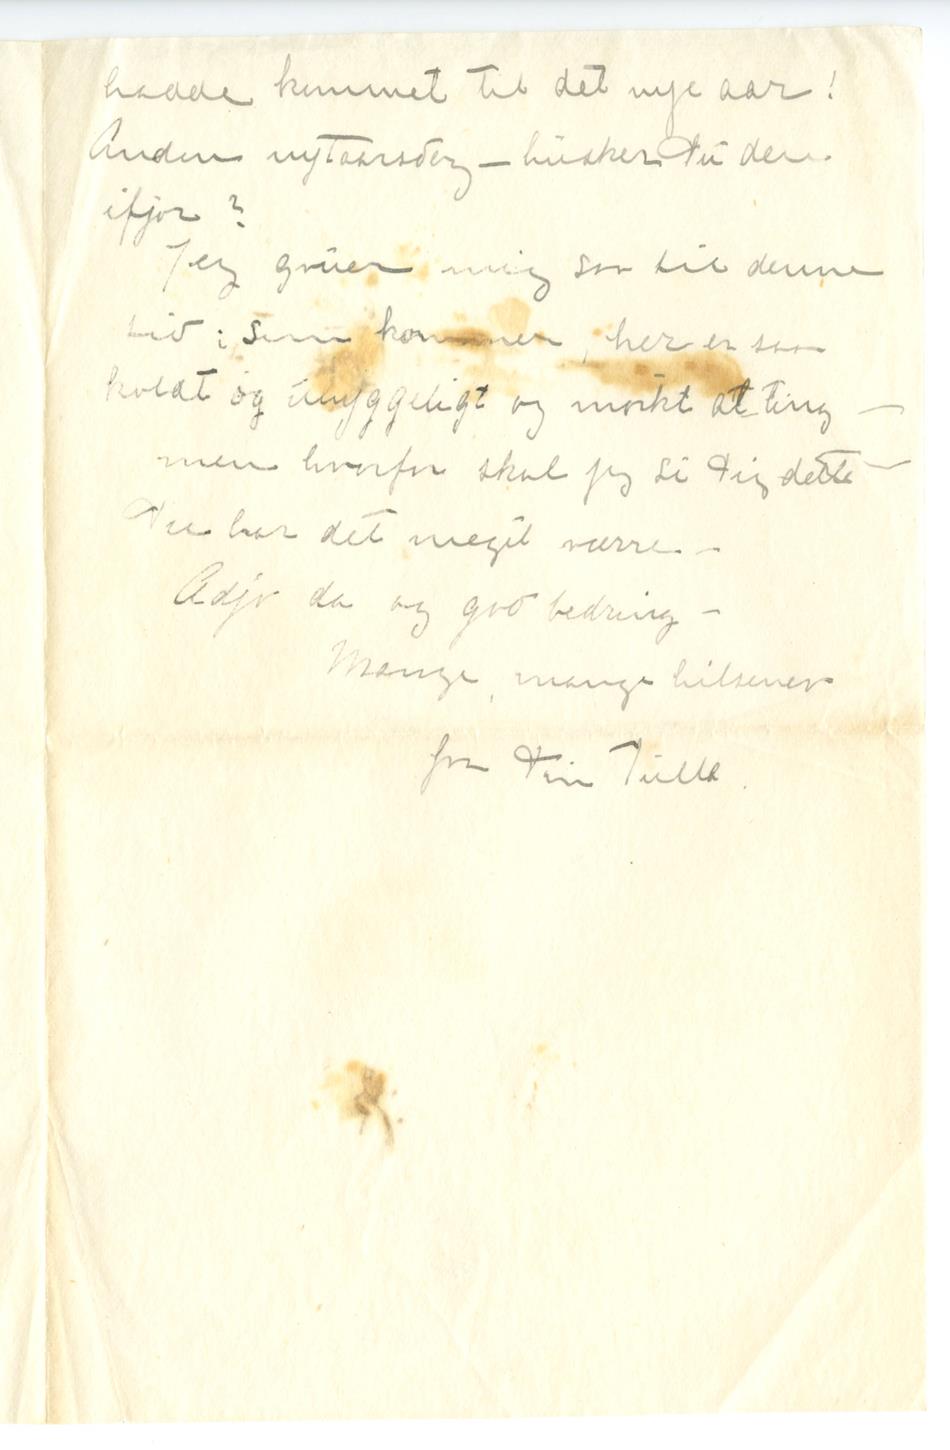 hadde kommet til det nye aar!
Anden nytaarsdag – husker Du den
ifjor?
Jeg gruer mig saa til denne
tid, som kommer, her er saa
koldt og uhyggeligt og mørkt alting –
men hvorfor skal jeg si Dig dette –
Du har det meget værre –
Adjø da og god bedring –
Mange, mange hilsener
fra Din Tulla.